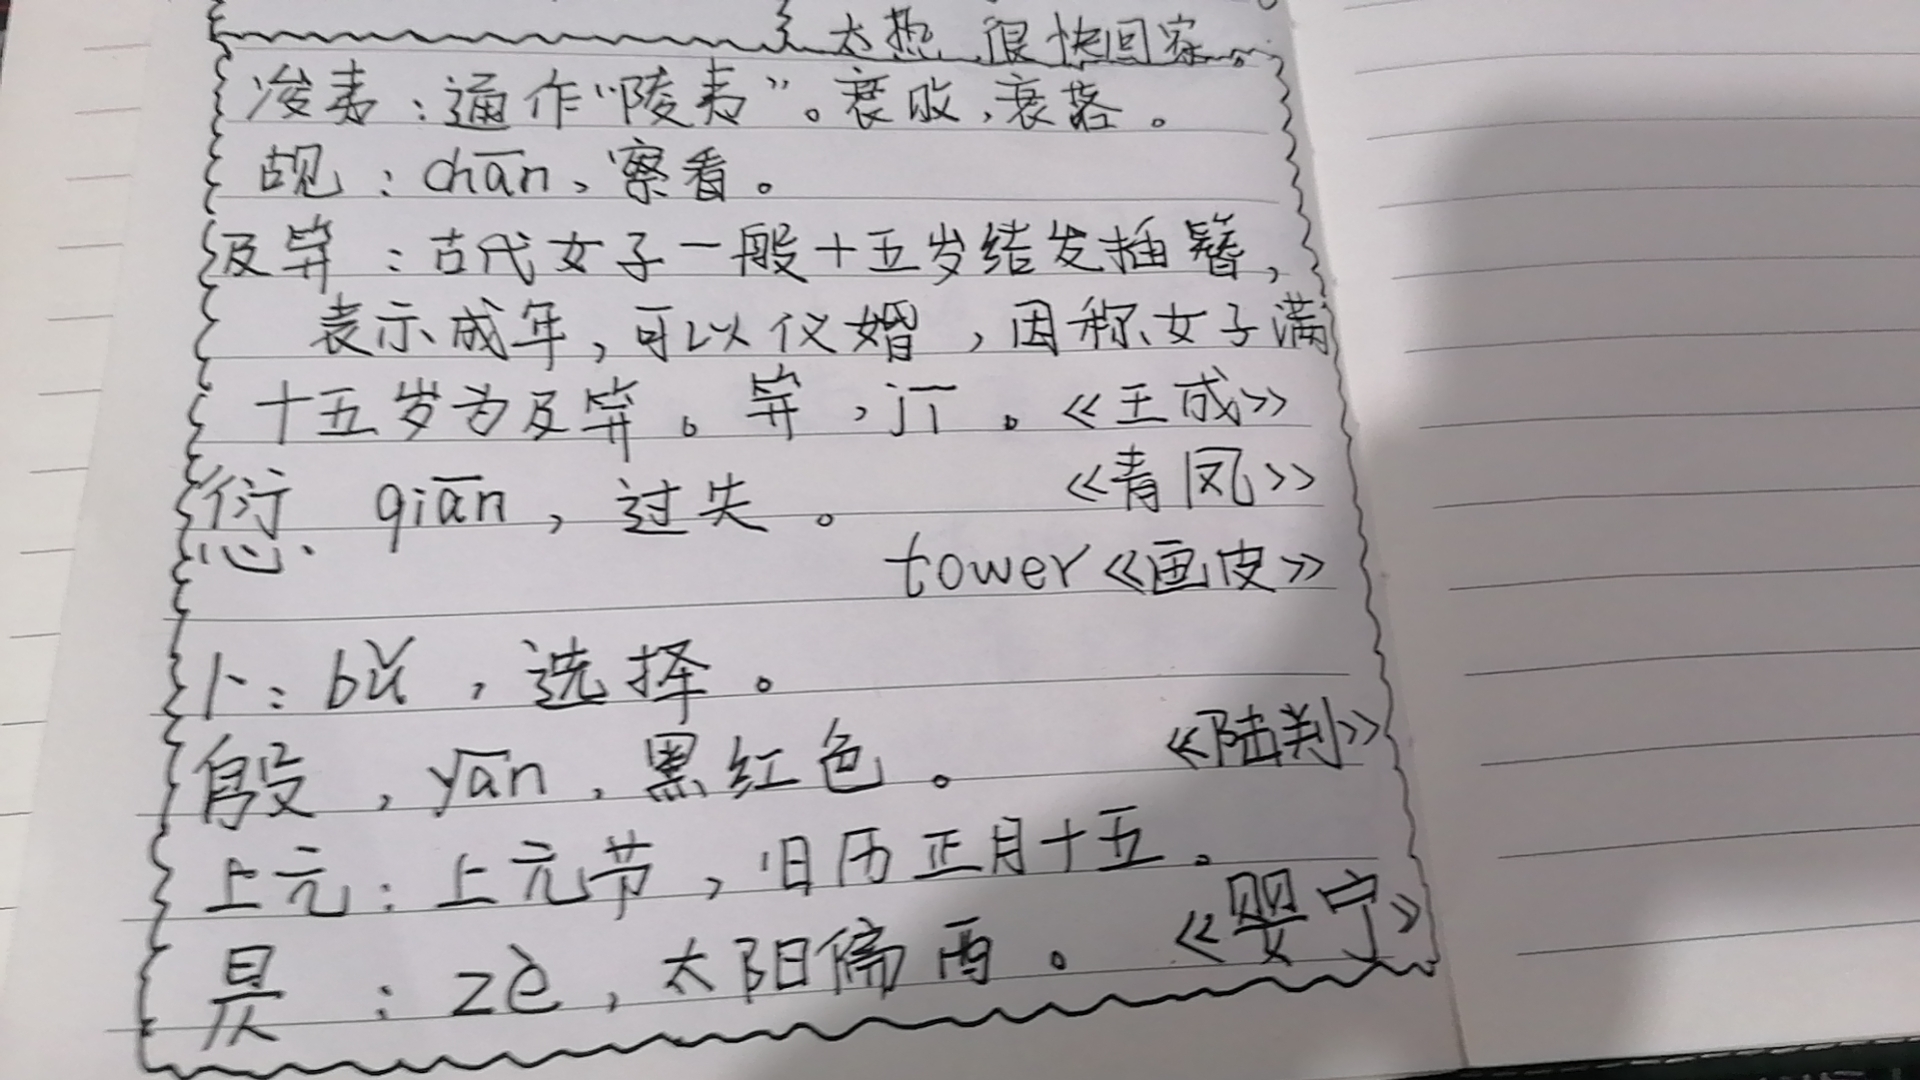 太热，很快回家。
凌夷：通作“陵夷”。衰败，衰落。
觇：chān、察看。
及笄：古代女子一般十五岁结发插簪，
表示成年，可以仪婚，因称女子满
十五岁为及笄。笄，jī。《王成》
愆 qiān，过失。《青凤》
tower《画皮》
卜：bǔ，选择。
殷，yān，黑红色。《陆判》
上元：上元节，旧历正月十五。
昃：zè，太阳偏西。《婴宁》